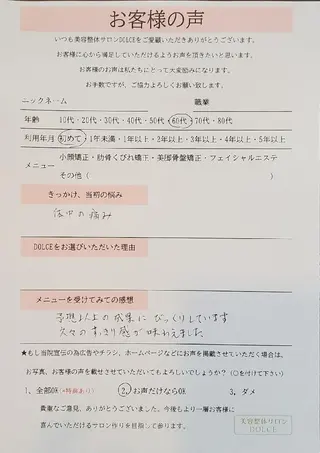 お客様の声
いつも美容整体サロンDOLCEをご愛顧いただきありがとうございます。
お客様に心から満足していただけるようお声を頂きたいと思います。
お客様のお声は私たちにとって大変励みになります。
お手数ですが、ご協力よろしくお願い致します。
ニックネーム 職業
年齢 10代・20代・30代・40代・50代・60代・70代・80代
利用年月 初めて・1年未満・1年以上・2年以上・3年以上・4年以上・5年以上
メニュー 小顔矯正・肋骨くびれ矯正・美脚骨盤矯正・フェイシャルエステ
その他( )
きっかけ、当初の悩み
体中の痛み
DOLCEをお選びいただいた理由
メニューを受けてみての感想
予想以上の成果にびっくりしています
久々のすっきり感が味わえました
★もし当院宣伝の為広告やチラシ、ホームページなどにお声を掲載させていただく場合は、
お写真、お客様の声を載せさせていただいてもよろしいでしょうか?(○を付けて下さい)
1、全部OK(*特典あり) 2、お声だけならOK 3、ダメ
貴重なご意見、ありがとうございました。今後もより一層お客様に
喜んでいただけるサロン作りを目指して参ります。
美容整体サロン
DOLCE